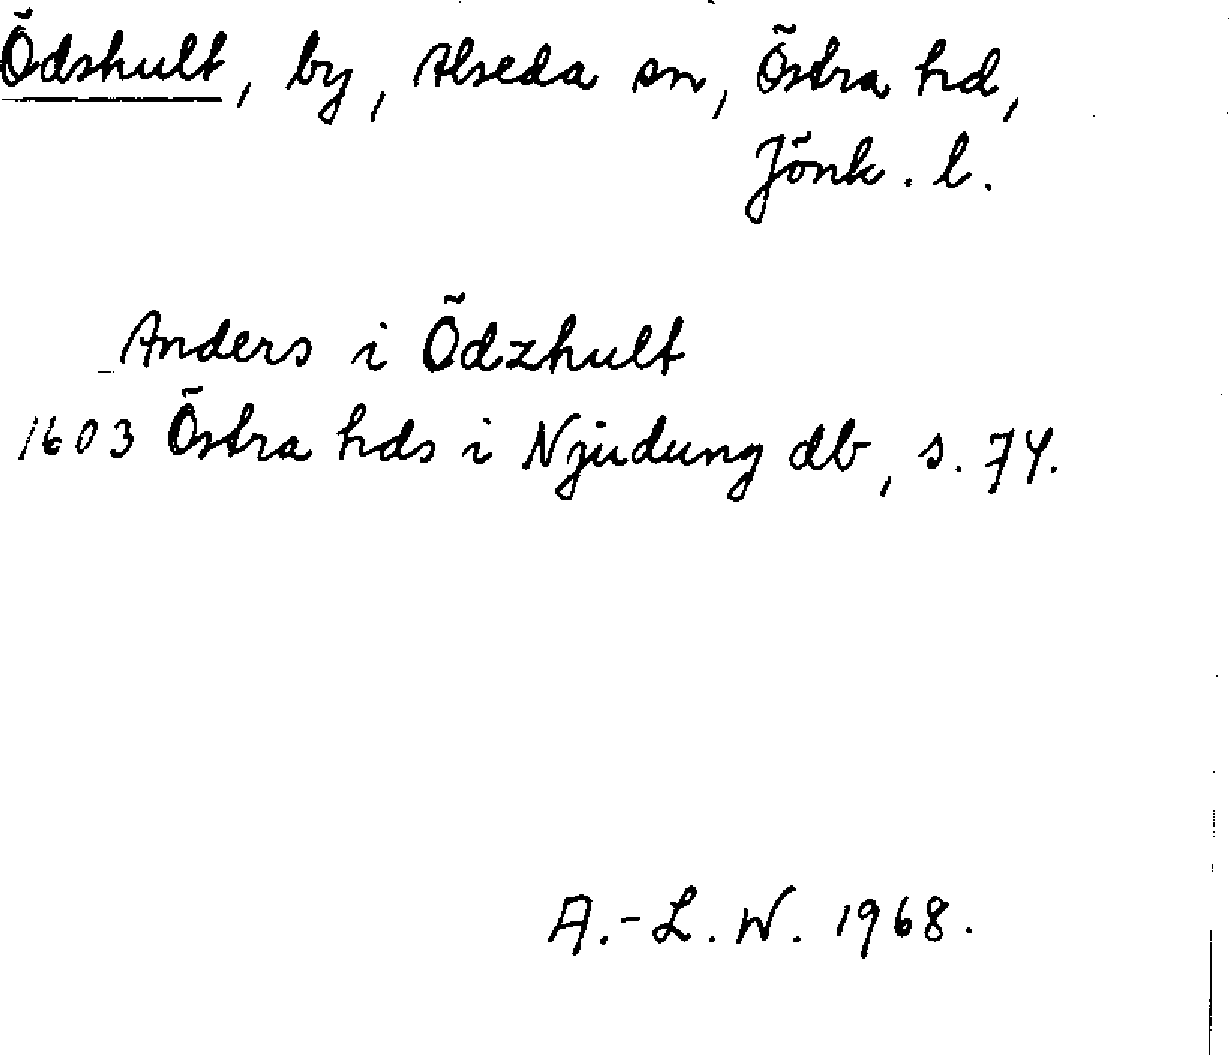 Ödshult, by, Alseda sn, Östra hd,
Jönk. l.
Anders i Ödzhult
1603 Östra hds i Njudung db, s. 74.
A.-L. W. 1968.